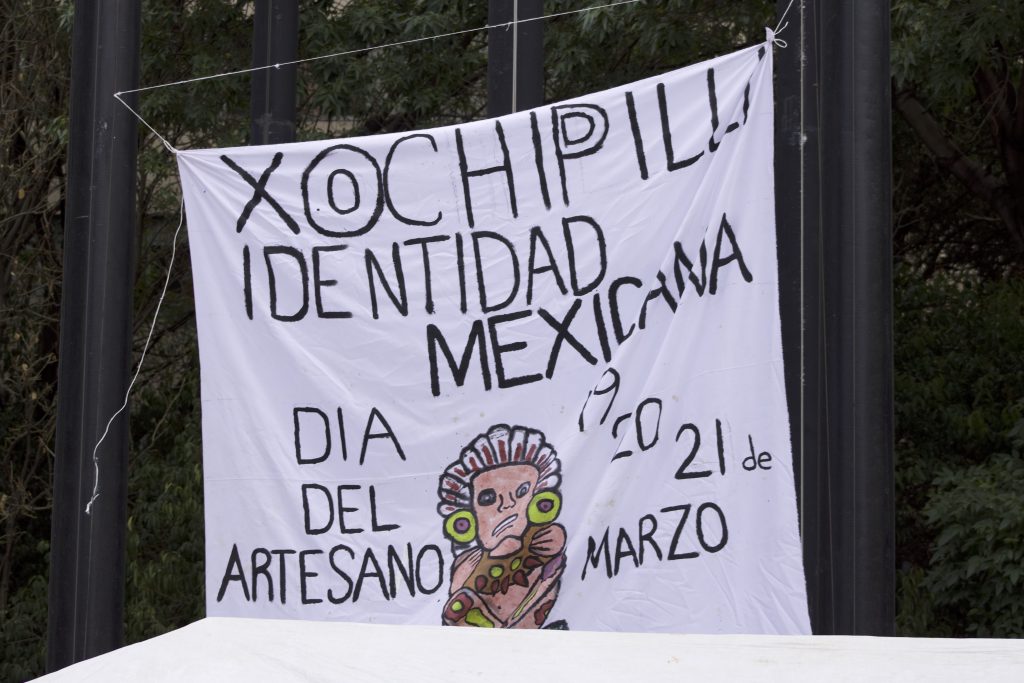 XOCHIPILLI
IDENTIDAD
MEXICANA
DIA
DEL
ARTESANO
19 20 21 de
MARZO